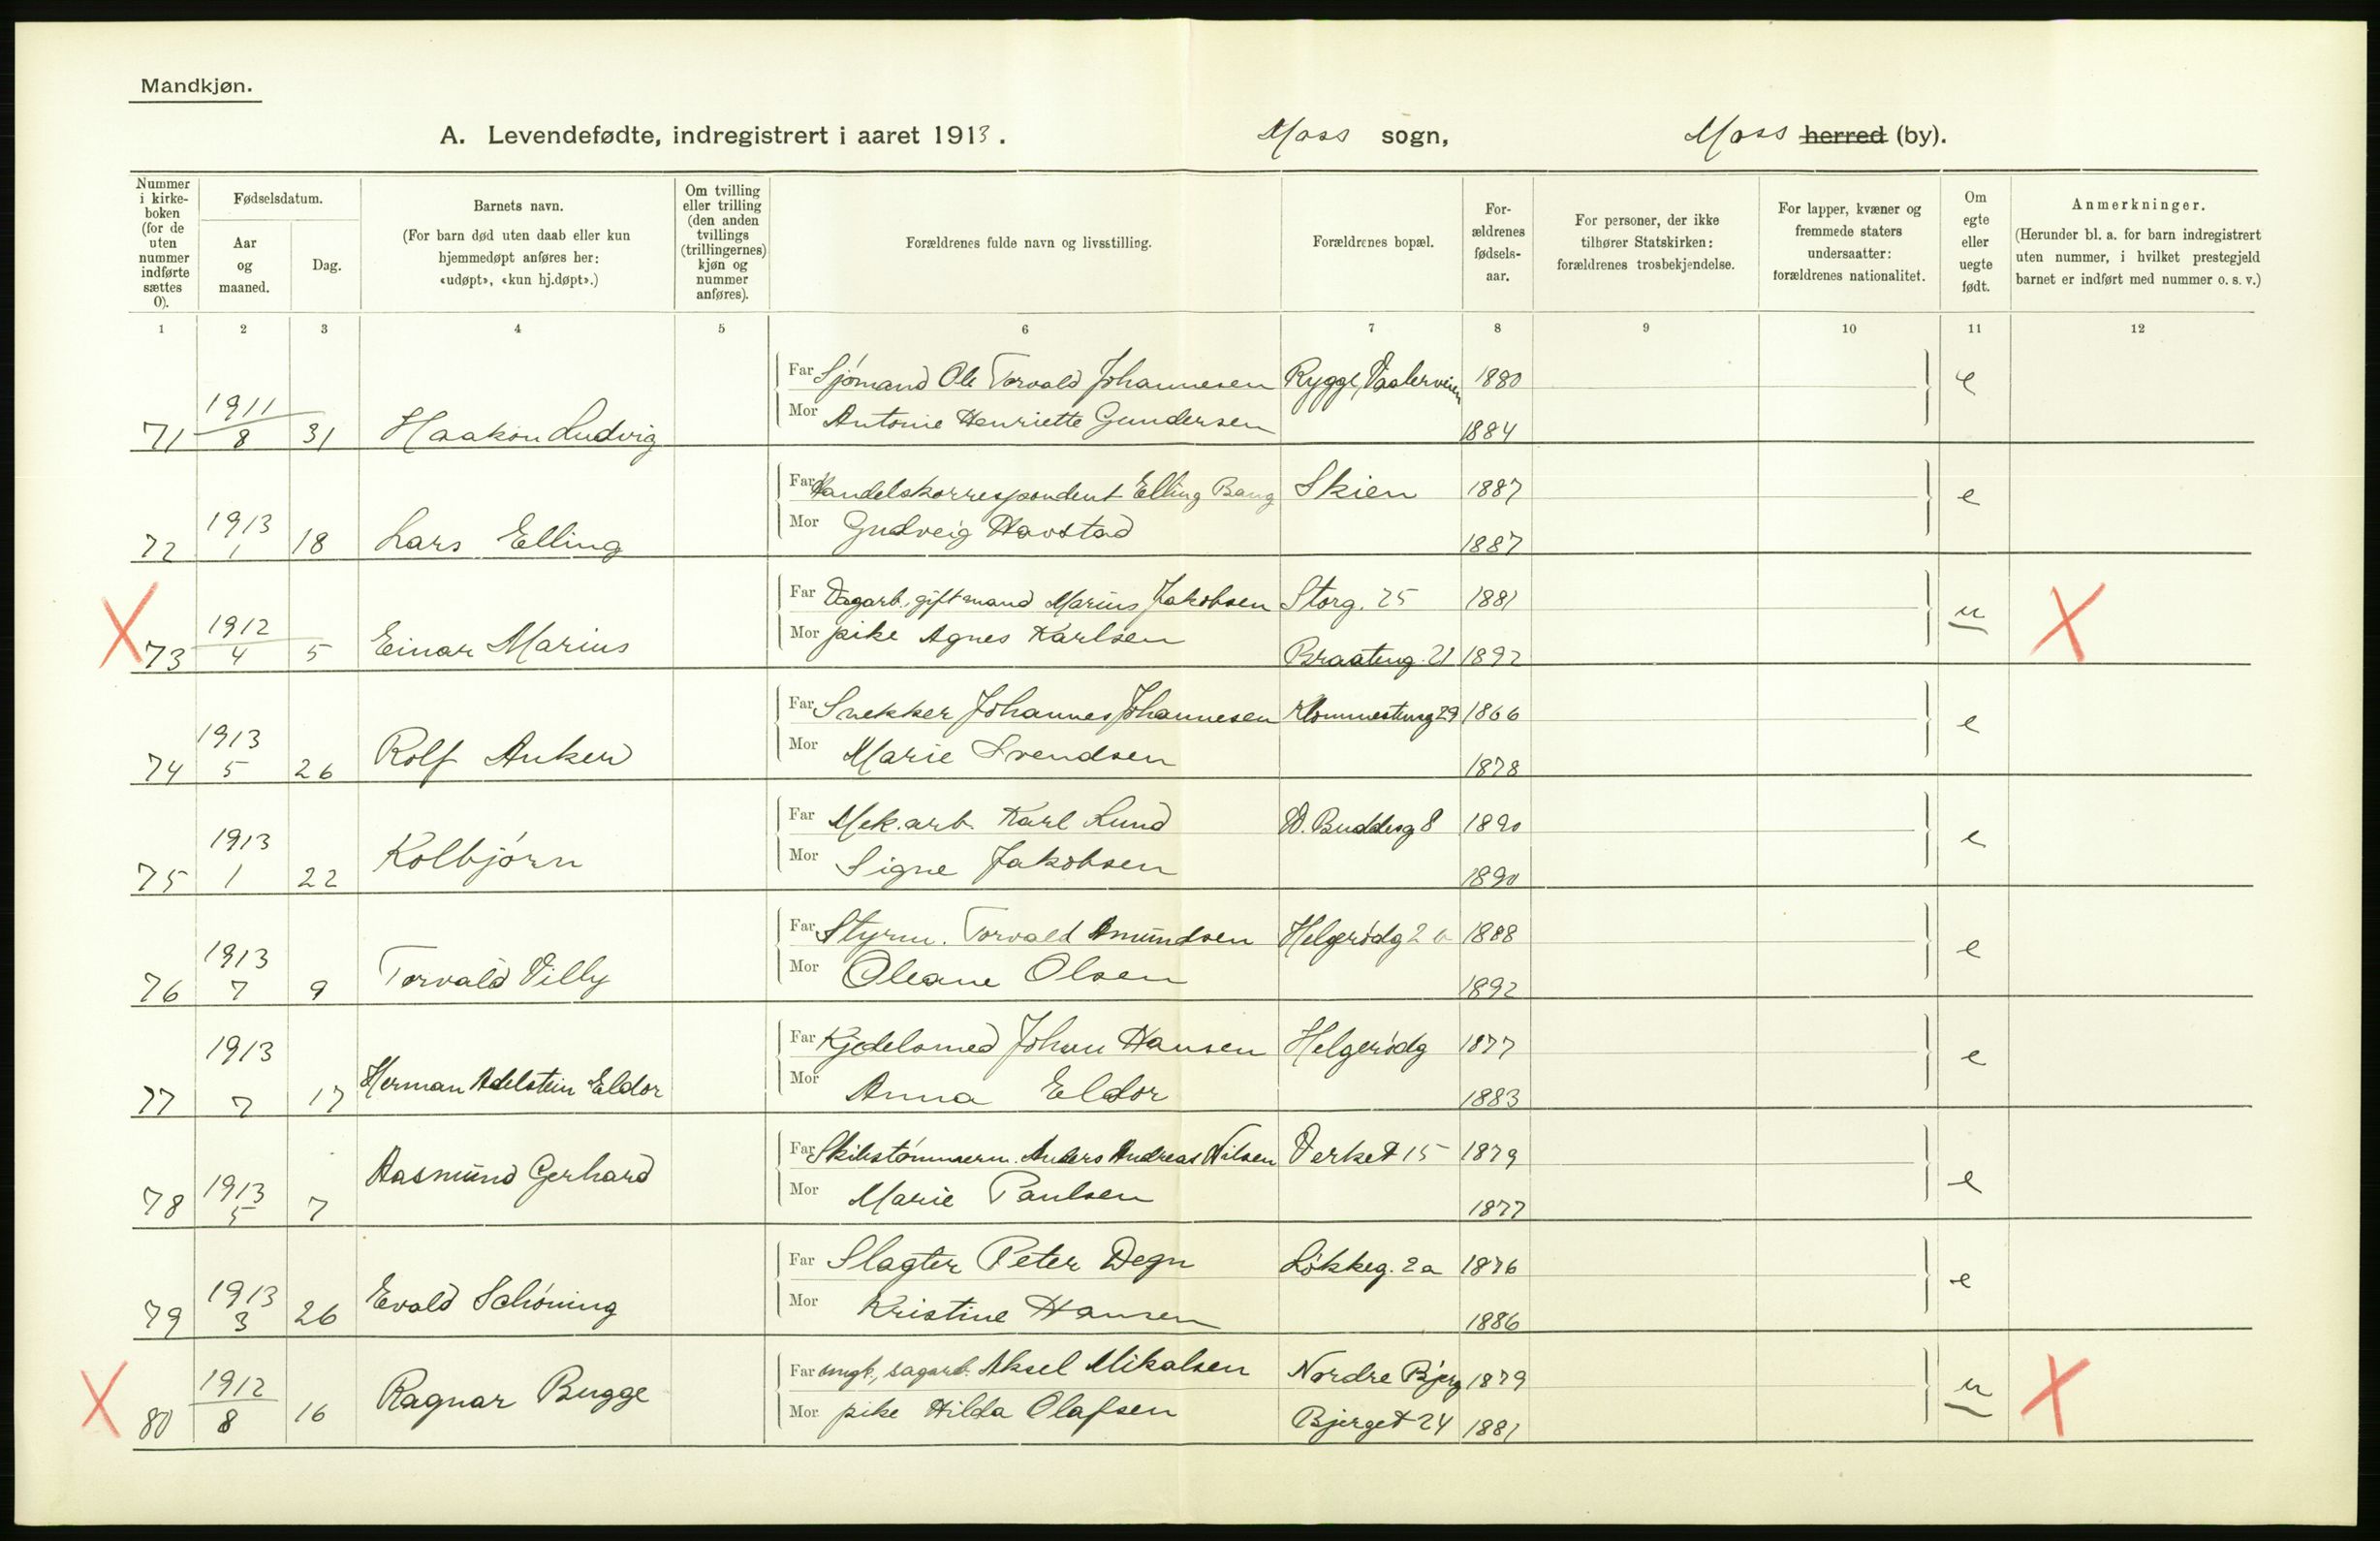 Mandkjøn.
A. Levendefødte, indregistrert i aaret 1913. Moss sogn, Moss herred (by).
Nummer i kirke-boken (for de uten nummer indførte sættes 0).
Fødselsdatum.
Aar og maaned.
Dag.
Barnets navn.
(For barn død uten daab eller kun hjemmedøpt anføres her: «udøpt», «kun hj.døpt».)
Om tvilling eller trilling (den anden tvillings (trillingernes) kjøn og nummer anføres).
Forældrenes fulde navn og livsstilling.
Forældrenes bopæl.
For-ældrenes fødsels-aar.
For personer, der ikke tilhører Statskirken: forældrenes trosbekjendelse.
For lapper, kvæner og fremmede staters undersaatter: forældrenes nationalitet.
Om egte eller uegte født.
Anmerkninger.
(Herunder bl. a. for barn indregistrert uten nummer, i hvilket prestegjeld barnet er indført med nummer o. s. v.)
1 2 3 4 5 6 7 8 9 10 11 12
Far Sjømand Ole Torvald Johannesen Rygge, Vaalerveien 1880 e
71 1911 8 31 Haakon Ludvig Mor Antonie Henriette Gundersen 1884
Far Handelskorrespondent Elling Bang Skien 1887 e
72 1913 1 18 Lars Elling Mor Gudveig Havstad 1887
Far Dagarb., gift mand Marius Jakobsen Storg. 25 1881 u
X 73 1912 4 5 Einar Marius Mor pike Agnes Karlsen Braateng. 21 1892 X
Far Snekker Johannes Johannesen 29 1866 e
74 1913 5 26 Rolf Anker Mor Marie Svendsen 1878
Far Mek. arb. Karl Lund D. Buddesg 8 1890 e
75 1913 1 22 Kolbjørn Mor Signe Jakobsen 1890
Far Styrm. Torvald Amundsen Helgerødg 2 1888 e
76 1913 7 9 Torvald Villy Mor Oleane Olsen 1892
Far Kjedelsmed Johan Hansen Helgerødg 1877 e
77 1913 7 17 Herman Adelstein Eldor Mor Anna Eldor 1883
Far Skibstømmerm. Anders Andreas Nilsen Verket 15 1879 e
78 1913 5 7 Aasmund Gerhard Mor Marie Paulsen 1877
Far Slagter Peter Degn Løkkeg. 2a 1876 e
79 1913 3 26 Evald Schøning Mor Kristine Hansen 1886
Far ungk., sagarb. Aksel Mikalsen Nordre Bjerg 1879 u
X 80 1912 8 16 Ragnar Bugge Mor pike Hilda Olafsen Bjerget 24 1881 X